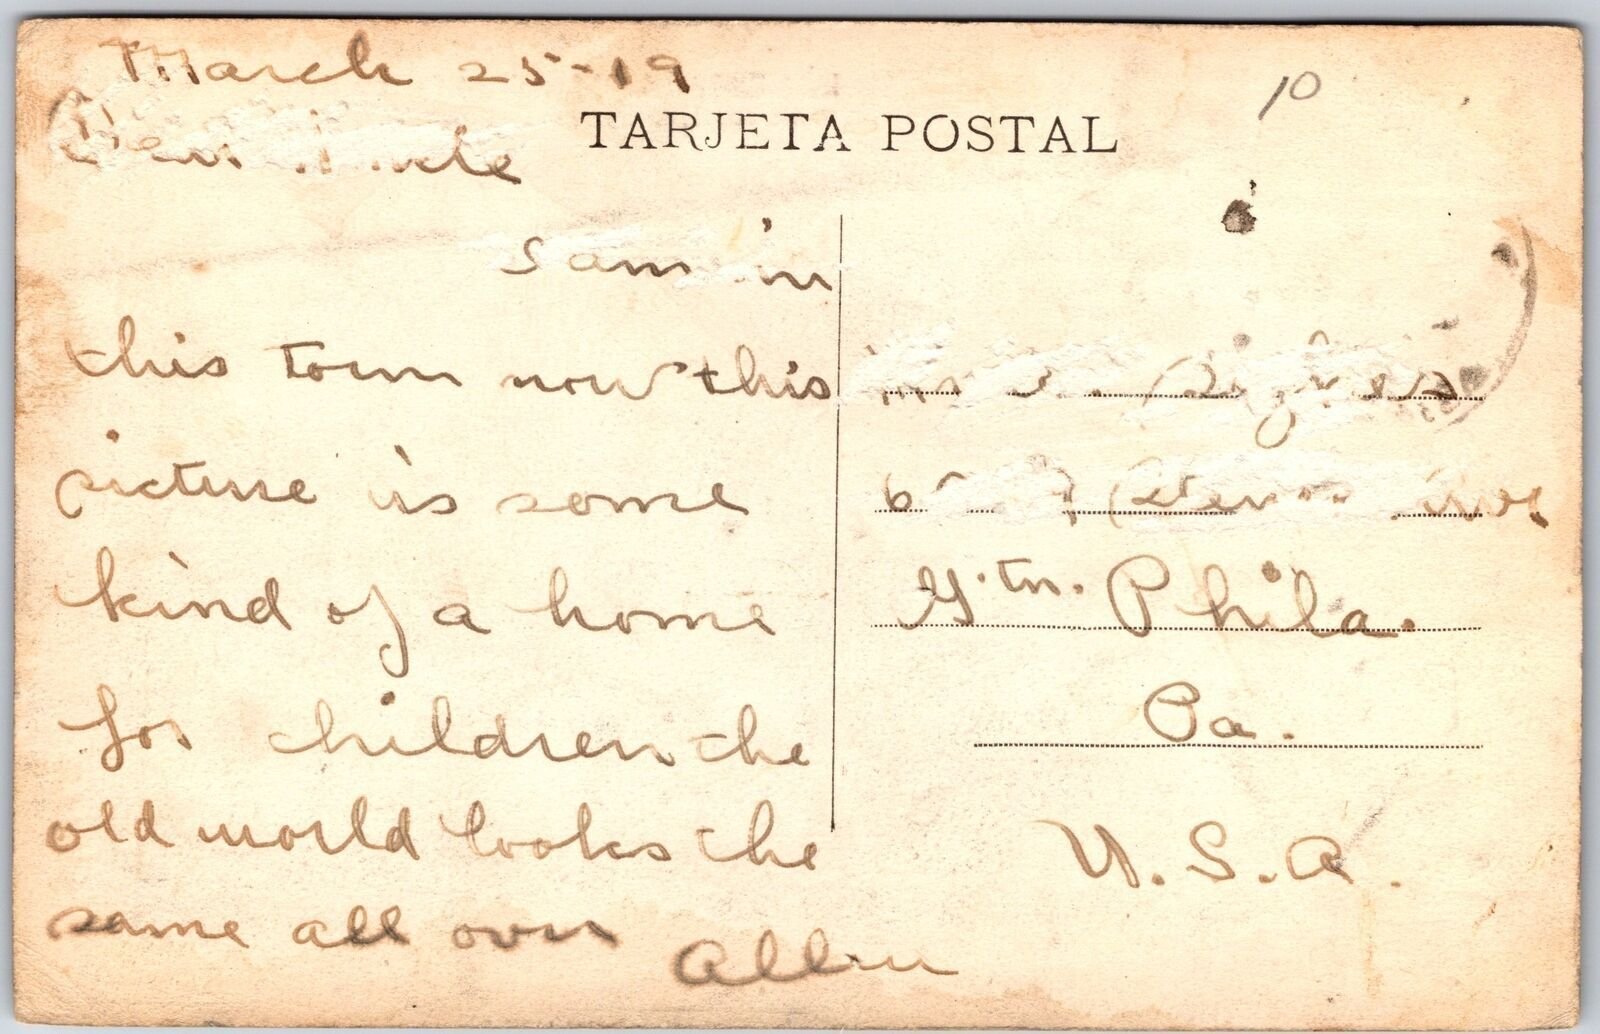 March 25-19
TARJETA POSTAL
10
I am in
this town now this
picture is some
kind of a home
for children the
old world looks the
same all over
Allen
G'tn. Phila.
Pa.
U.S.A.